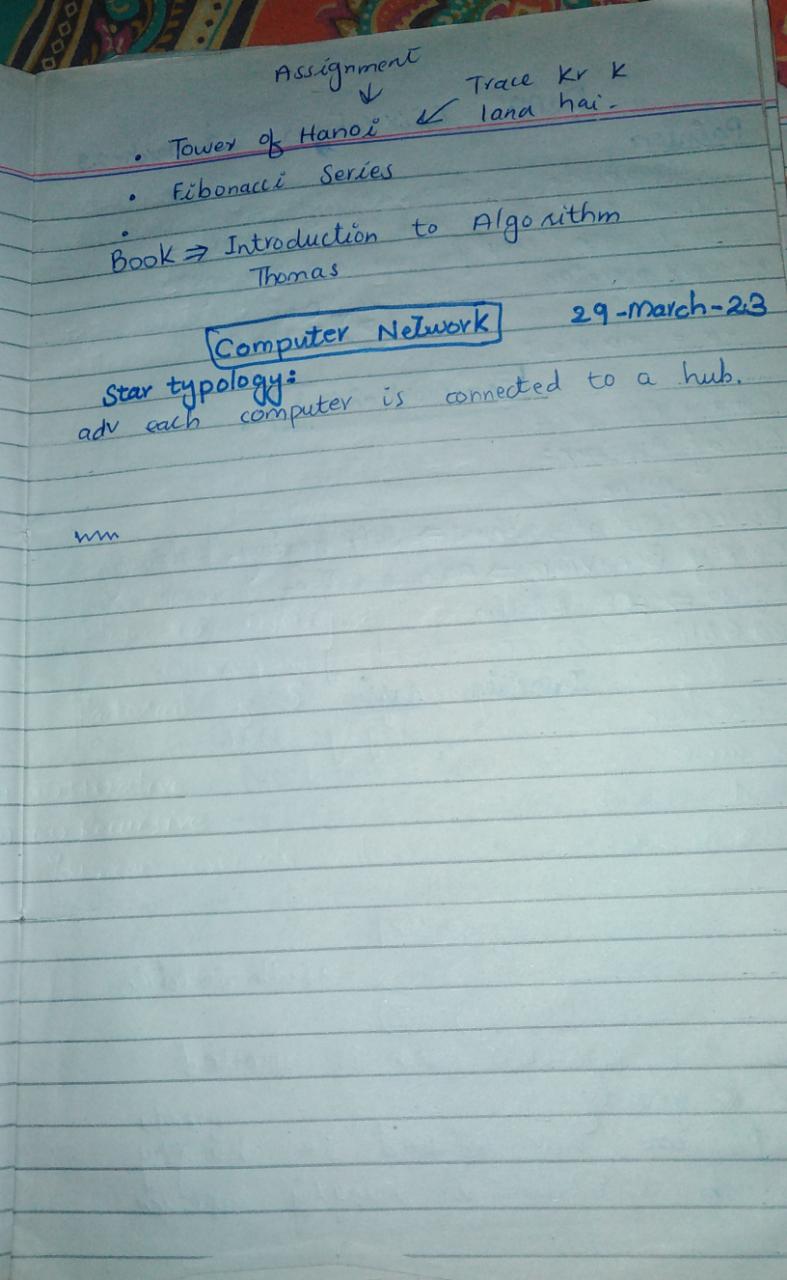 Assignment
↓
Trace kr k
• Tower of Hanoi ↙ lana hai.
• Fibonacci Series
•
Book ⇒ Introduction to Algorithm
Thomas
Computer Network 29-March-23
Star typology:
adv each computer is connected to a hub.